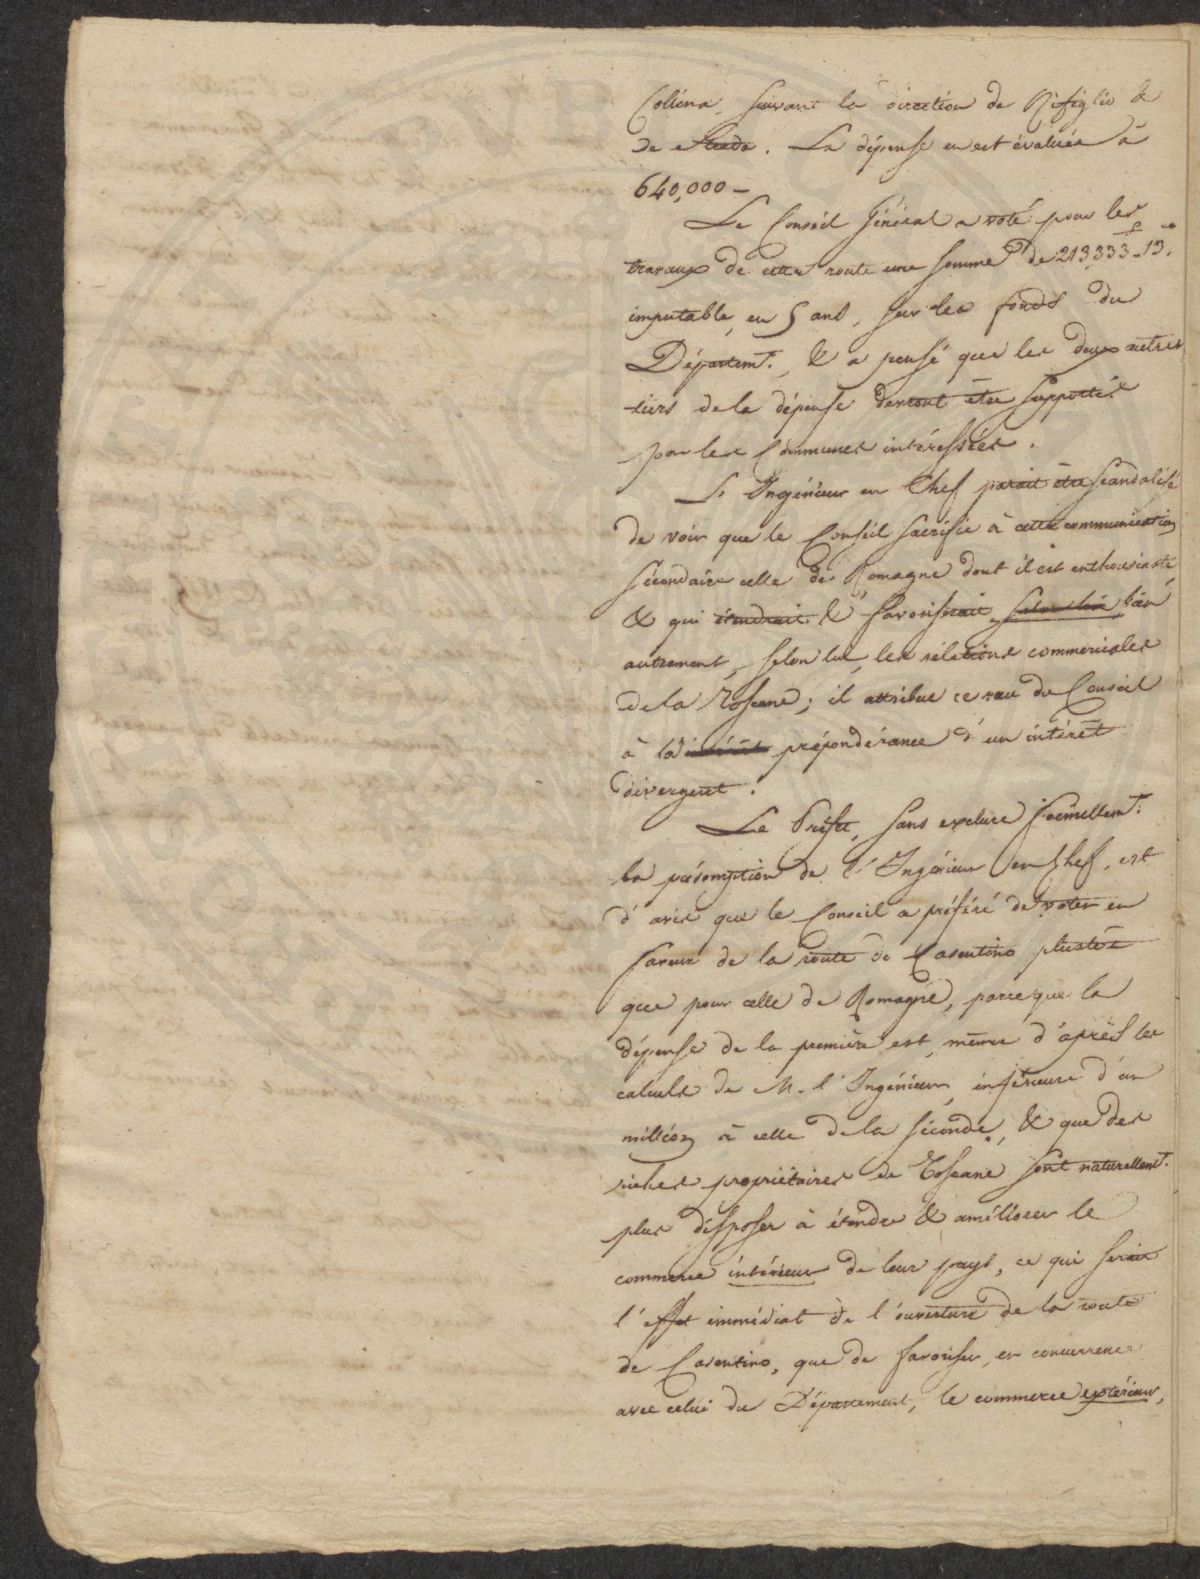 Collina, suivant la direction de Rifiglio &
de Strada. La dépense en est évaluée à
640,000 –
Le Conseil Général a voté pour les
travaux de cette route une somme de 213,333 f. 13 c.
imputable, en 5 ans, sur les fonds du
Départem.t, & a pensé que les deux autres
tiers de la dépense devront être supportés
par les Communes intéressées.
L'Ingénieur en Chef parait être scandalisé
de voir que le Conseil sacrifie à cette communication
sécondaire celle de Romagne dont il est enthousiaste
& qui étendrait & favoriserait bien
autrement, selon lui, les rélations commerciales
de la Toscane; il attribue ce vœu du Conseil
à la préponderance d'un intérêt
divergent.
Le Préfet, sans exclure formellem.t
la présomption de l'Ingénieur en Chef, est
d'avis que le Conseil a préféré de voter en
faveur de la route de Casentino plustôt
que pour celle de Romagne, parceque la
dépense de la première est, même d'après les
calculs de M. l'Ingénieur, inférieure d'un
million à celle de la séconde, & que des
riches propriétaires de Toscane sont naturellem.t
plus disposés à étendre & améliorer le
commerce intérieur de leur pays, ce qui serait
l'effet immédiat de l'ouverture de la route
de Casentino, que de favoriser, en concurrence
avec celui du Département, le commerce extérieur,